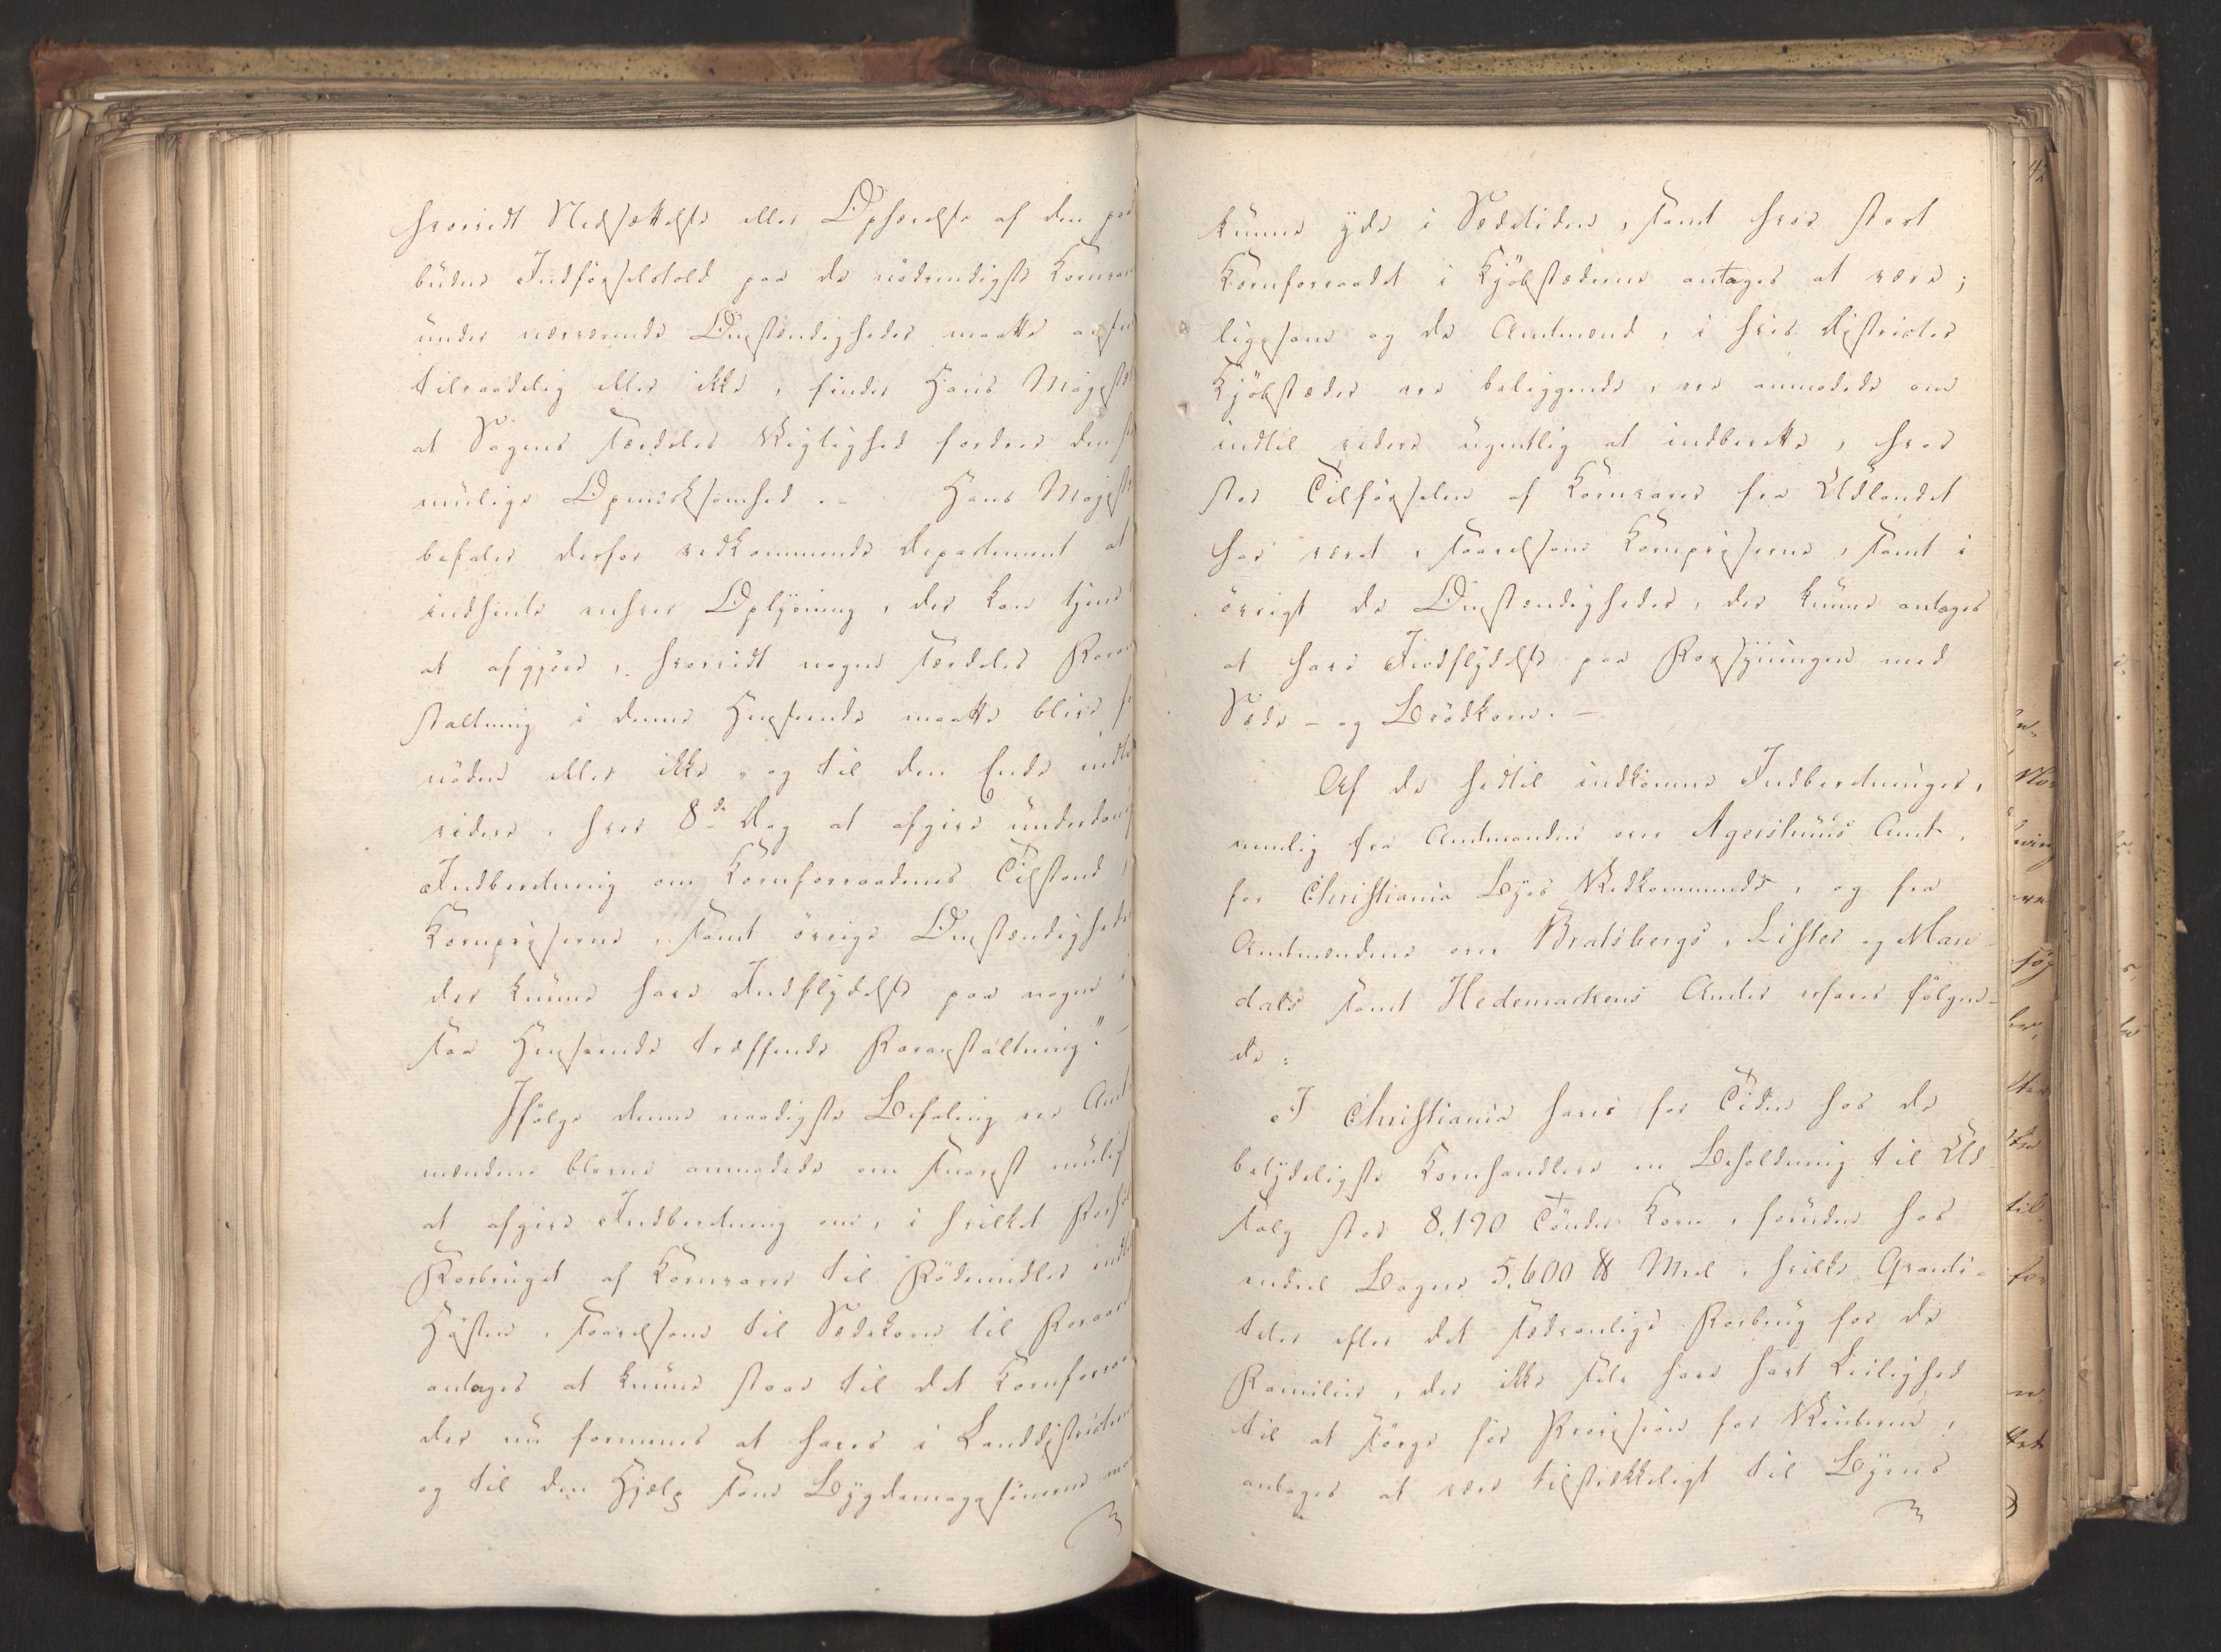 hvorvidt Nedsættelse eller Ophævelse af den paa
budne Indförselstold paa de nödvendigste Kornvar
under nærværende Omstændigheder maatte ansee
tilraadelig eller ikke, finder Hans Majestæt
at Sagens særdeles Vigtighed fordrer den st
mulige Opmærksomhed. – Hans Majestæt
befaler derfor vedkommende Departement at
indhente enhver Oplysning, der kan tjene
at afgjöre, hvorvidt nogen særdeles Foran
staltning i denne Henseende maatte blive
nöden eller ikke, og til den Ende indtil
videre, hver 8de Dag at afgive underdanig
Indberetning om Kornforraadenes Tilstand,
Kornpriserne, samt övrige Omstændigheder
der kunne have Indflydelse paa nogen i
saa Henseende træffende Foranstaltning". –
Ifölge denne naadigste Befaling ere Amt
mændene blevne anmodede om snarest muligt
at afgive Indberetning om, i hvilket Forho
Forbruget af Kornvarer til Födemidler indtil
Hösten, saavelsom til Sædekorn til Foraaret
antages at kunne staae til det Kornforraad
der nu formenes at haves i Landdistricterne
og til den Hjælp som Bygdemagasinerne maa
kunne yde i Sædetiden, samt hvor stort
Kornforraadet i Kjöbstæderne antages at være;
ligesom og de Amtmænd, i hvis Districter
Kjöbstæder ere beliggende, ere anmodede om
indtil videre ugentlig at indberette, hvor
stor Tilförselen af Kornvarer fra Udlandet
har været, saavelsom Kornpriserne, samt i
övrigt de Omstændigheder, der kunne antages
at have Indflydelse paa Forsyningen med
Sæde- og Brödkorn. –
Af de hidtil indkomne Indberetninger,
nemlig fra Amtmanden over Agershuus Amt,
for Christiania Byes Vedkommende, og fra
Amtmændene over Bratsbergs, Lister og Man-
dals samt Hedemarkens Amter erfares fölgen-
de:
I Christiania haves for Tiden hos de
betydeligste Kornhandlere en Beholdning til Ud-
salg stor 8,190 Tönder Korn, foruden hos
endeel Bagere 5,600 ℔ Meel, hvilke Qvanti-
teter efter det sædvanlige Forbrug for de
Familier, der ikke selv have havt Leilighed
til at sörge for Provision for Vinteren,
antages at være tilstrækkeligt til Byens